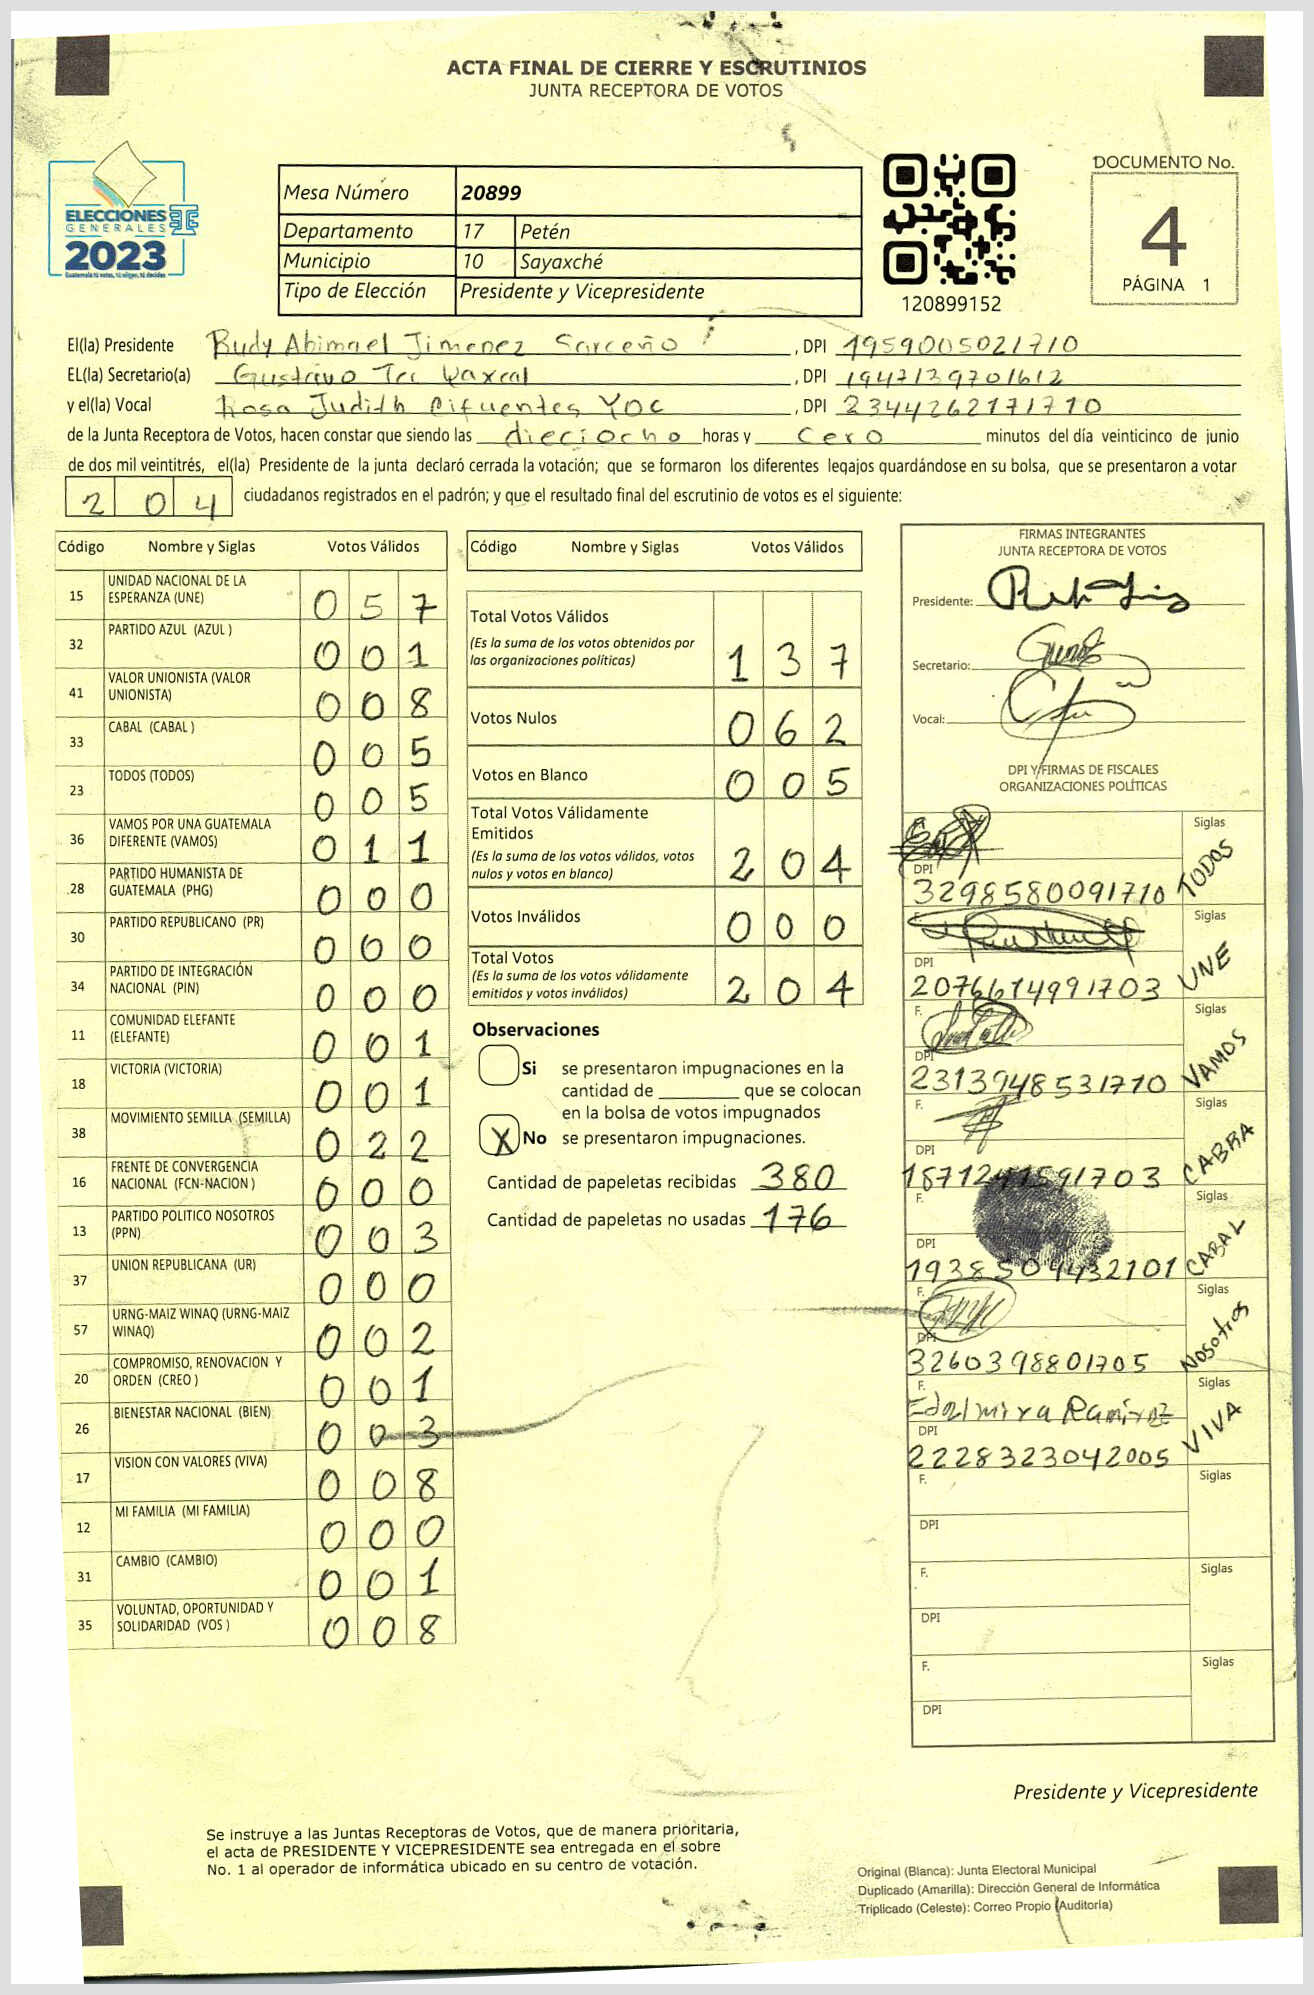 ACTA FINAL DE CIERRE Y ESCRUTINIOS
JUNTA RECEPTORA DE VOTOS
ELECCIONES
GENERALES
2023
Guatemala tú votas, tú eliges, tú decides
Mesa Número 20899
Departamento 17 Petén
Municipio 10 Sayaxché
Tipo de Elección Presidente y Vicepresidente
120899152
DOCUMENTO No.
4
PÁGINA 1
El(la) Presidente Rudy Abimael Jimenez Sarceño , DPI 1959005021710
EL(la) Secretario(a) Gustavo , DPI 1947139701612
y el(la) Vocal Rosa Judith Cifuentes YOC , DPI 2344262171710
de la Junta Receptora de Votos, hacen constar que siendo las dieciocho horas y cero minutos del día veinticinco de junio
de dos mil veintitrés, el(la) Presidente de la junta declaró cerrada la votación; que se formaron los diferentes legajos guardándose en su bolsa, que se presentaron a votar
204 ciudadanos registrados en el padrón; y que el resultado final del escrutinio de votos es el siguiente:
Código Nombre y Siglas Votos Válidos
15 UNIDAD NACIONAL DE LA
ESPERANZA (UNE) 057
32 PARTIDO AZUL (AZUL ) 001
41 VALOR UNIONISTA (VALOR
UNIONISTA) 008
33 CABAL (CABAL ) 005
23 TODOS (TODOS) 005
36 VAMOS POR UNA GUATEMALA
DIFERENTE (VAMOS) 011
28 PARTIDO HUMANISTA DE
GUATEMALA (PHG) 000
30 PARTIDO REPUBLICANO (PR) 000
34 PARTIDO DE INTEGRACIÓN
NACIONAL (PIN) 000
11 COMUNIDAD ELEFANTE
(ELEFANTE) 001
18 VICTORIA (VICTORIA) 001
38 MOVIMIENTO SEMILLA (SEMILLA) 022
16 FRENTE DE CONVERGENCIA
NACIONAL (FCN-NACION ) 000
13 PARTIDO POLITICO NOSOTROS
(PPN) 003
37 UNION REPUBLICANA (UR) 000
57 URNG-MAIZ WINAQ (URNG-MAIZ
WINAQ) 002
20 COMPROMISO, RENOVACION Y
ORDEN (CREO ) 001
26 BIENESTAR NACIONAL (BIEN) 003
17 VISION CON VALORES (VIVA) 008
12 MI FAMILIA (MI FAMILIA) 000
31 CAMBIO (CAMBIO) 001
35 VOLUNTAD, OPORTUNIDAD Y
SOLIDARIDAD (VOS ) 008
Código Nombre y Siglas Votos Válidos
Total Votos Válidos
(Es la suma de los votos obtenidos por
las organizaciones políticas) 137
Votos Nulos 062
Votos en Blanco 005
Total Votos Válidamente
Emitidos
(Es la suma de los votos válidos, votos
nulos y votos en blanco) 204
Votos Inválidos 000
Total Votos
(Es la suma de los votos válidamente
emitidos y votos inválidos) 204
Observaciones
Si se presentaron impugnaciones en la
cantidad de ________ que se colocan
en la bolsa de votos impugnados
X No se presentaron impugnaciones.
Cantidad de papeletas recibidas 380
Cantidad de papeletas no usadas 176
FIRMAS INTEGRANTES
JUNTA RECEPTORA DE VOTOS
Presidente:
Secretario:
Vocal:
DPI Y FIRMAS DE FISCALES
ORGANIZACIONES POLÍTICAS
Siglas
DPI
3298580091710 TODOS
F. Siglas
DPI
2076674991703 UNE
F. Siglas
DPI
2313948531710 VAMOS
F. Siglas
DPI
CABRA
F. Siglas
DPI
1938504432101 CABAL
F. Siglas
DPI
3260398801705 Nosotros
F. Siglas
Edelmira Ramirez
DPI
2228323042005 VIVA
F. Siglas
DPI
F. Siglas
DPI
F. Siglas
DPI
Presidente y Vicepresidente
Se instruye a las Juntas Receptoras de Votos, que de manera prioritaria,
el acta de PRESIDENTE Y VICEPRESIDENTE sea entregada en el sobre
No. 1 al operador de informática ubicado en su centro de votación.
Original (Blanca): Junta Electoral Municipal
Duplicado (Amarilla): Dirección General de Informática
Triplicado (Celeste): Correo Propio (Auditoría)